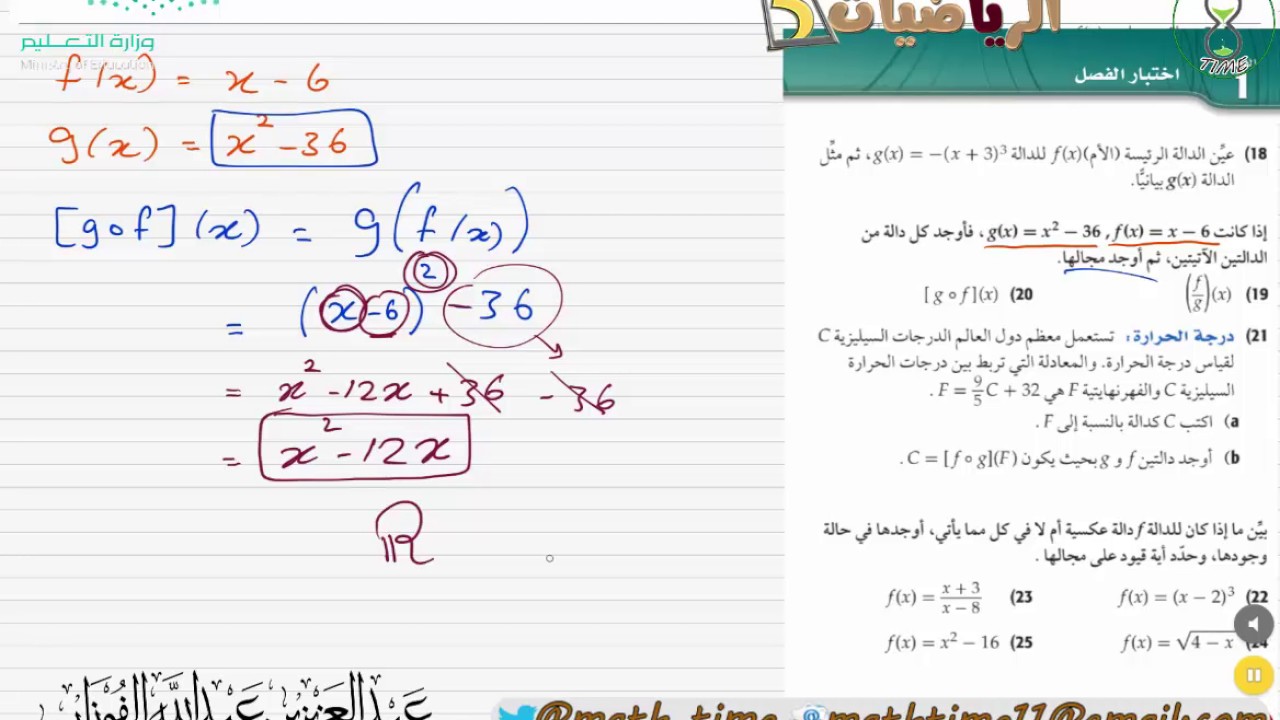 وزارة التعليم
Ministry of Education
f(x) = x - 6
g(x) = x² - 36
[g∘f](x) = g(f(x))
= (x - 6)² - 36
= x² - 12x + 36 - 36
= x² - 12x
ℝ
عبدالعزيز عبدالله الفوزان
الرياضيات 5
TIME
1 اختبار الفصل
18) عيّن الدالة الرئيسة (الأم) f(x) للدالة g(x) = −(x + 3)³ ، ثم مثّل
الدالة g(x) بيانيًّا.
إذا كانت f(x) = x − 6 , g(x) = x² − 36 ، فأوجد كل دالة من
الدالتين الآتيتين، ثم أوجد مجالها.
19) (f/g)(x) 20) [g ∘ f](x)
21) درجة الحرارة: تستعمل معظم دول العالم الدرجات السيليزية C
لقياس درجة الحرارة. والمعادلة التي تربط بين درجات الحرارة
السيليزية C والفهرنهايتية F هي F = 9/5 C + 32 .
a) اكتب C كدالة بالنسبة إلى F .
b) أوجد دالتين f و g بحيث يكون C = [f ∘ g](F) .
بيّن ما إذا كان للدالة f دالة عكسية أم لا في كل مما يأتي، أوجدها في حالة
وجودها، وحدّد أية قيود على مجالها .
22) f(x) = (x − 2)³ 23) f(x) = x + 3 / x − 8
24) f(x) = √4 − x 25) f(x) = x² − 16
@math_time mathtime11@gmail.com